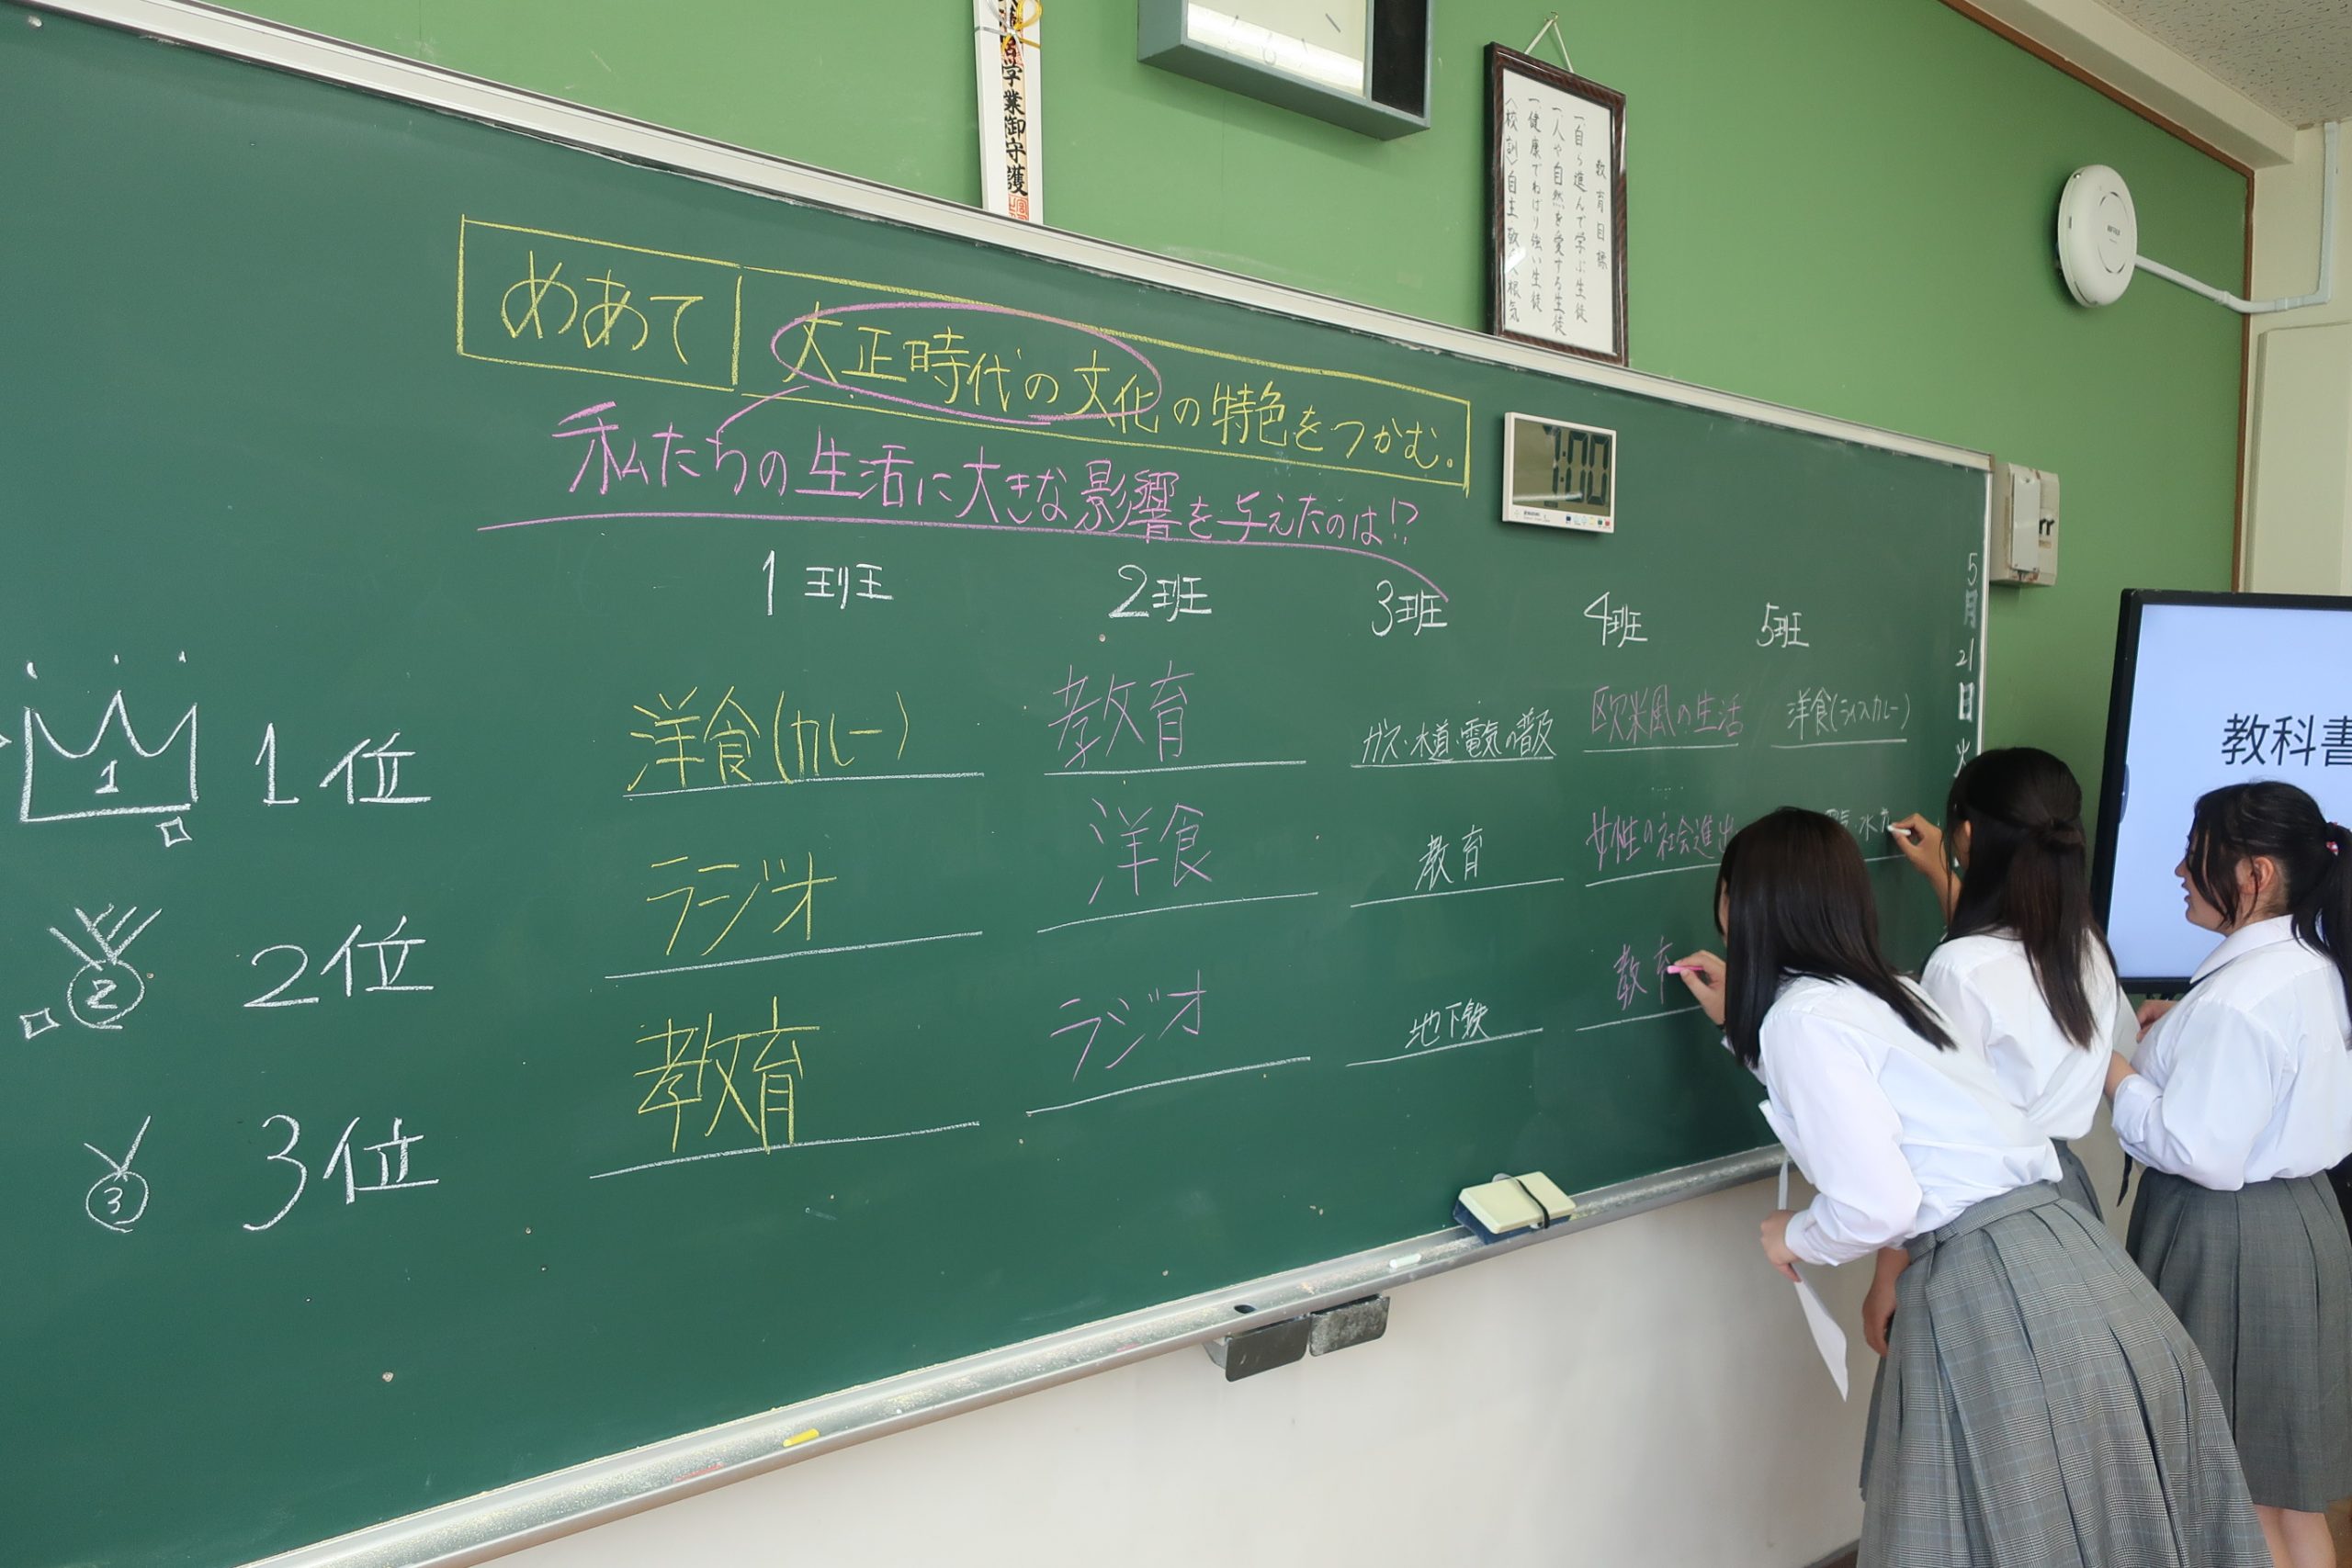 学業御守護
教育目標
「自ら進んで学ぶ生徒
「人や自然を愛する生徒
「健康でねばり強い生徒
〈校訓〉自主 敬人 根気
めあて 大正時代の文化の特色をつかむ。
私たちの生活に大きな影響を与えたのは!?
1:00
5月21日火
1班 2班 3班 4班 5班
1 1位 洋食(カレー) 教育 ガス・水道・電気の普及 欧米風の生活 洋食(ライスカレー)
2 2位 ラジオ 洋食 教育 女性の社会進出
3 3位 教育 ラジオ 地下鉄 教育
教科書